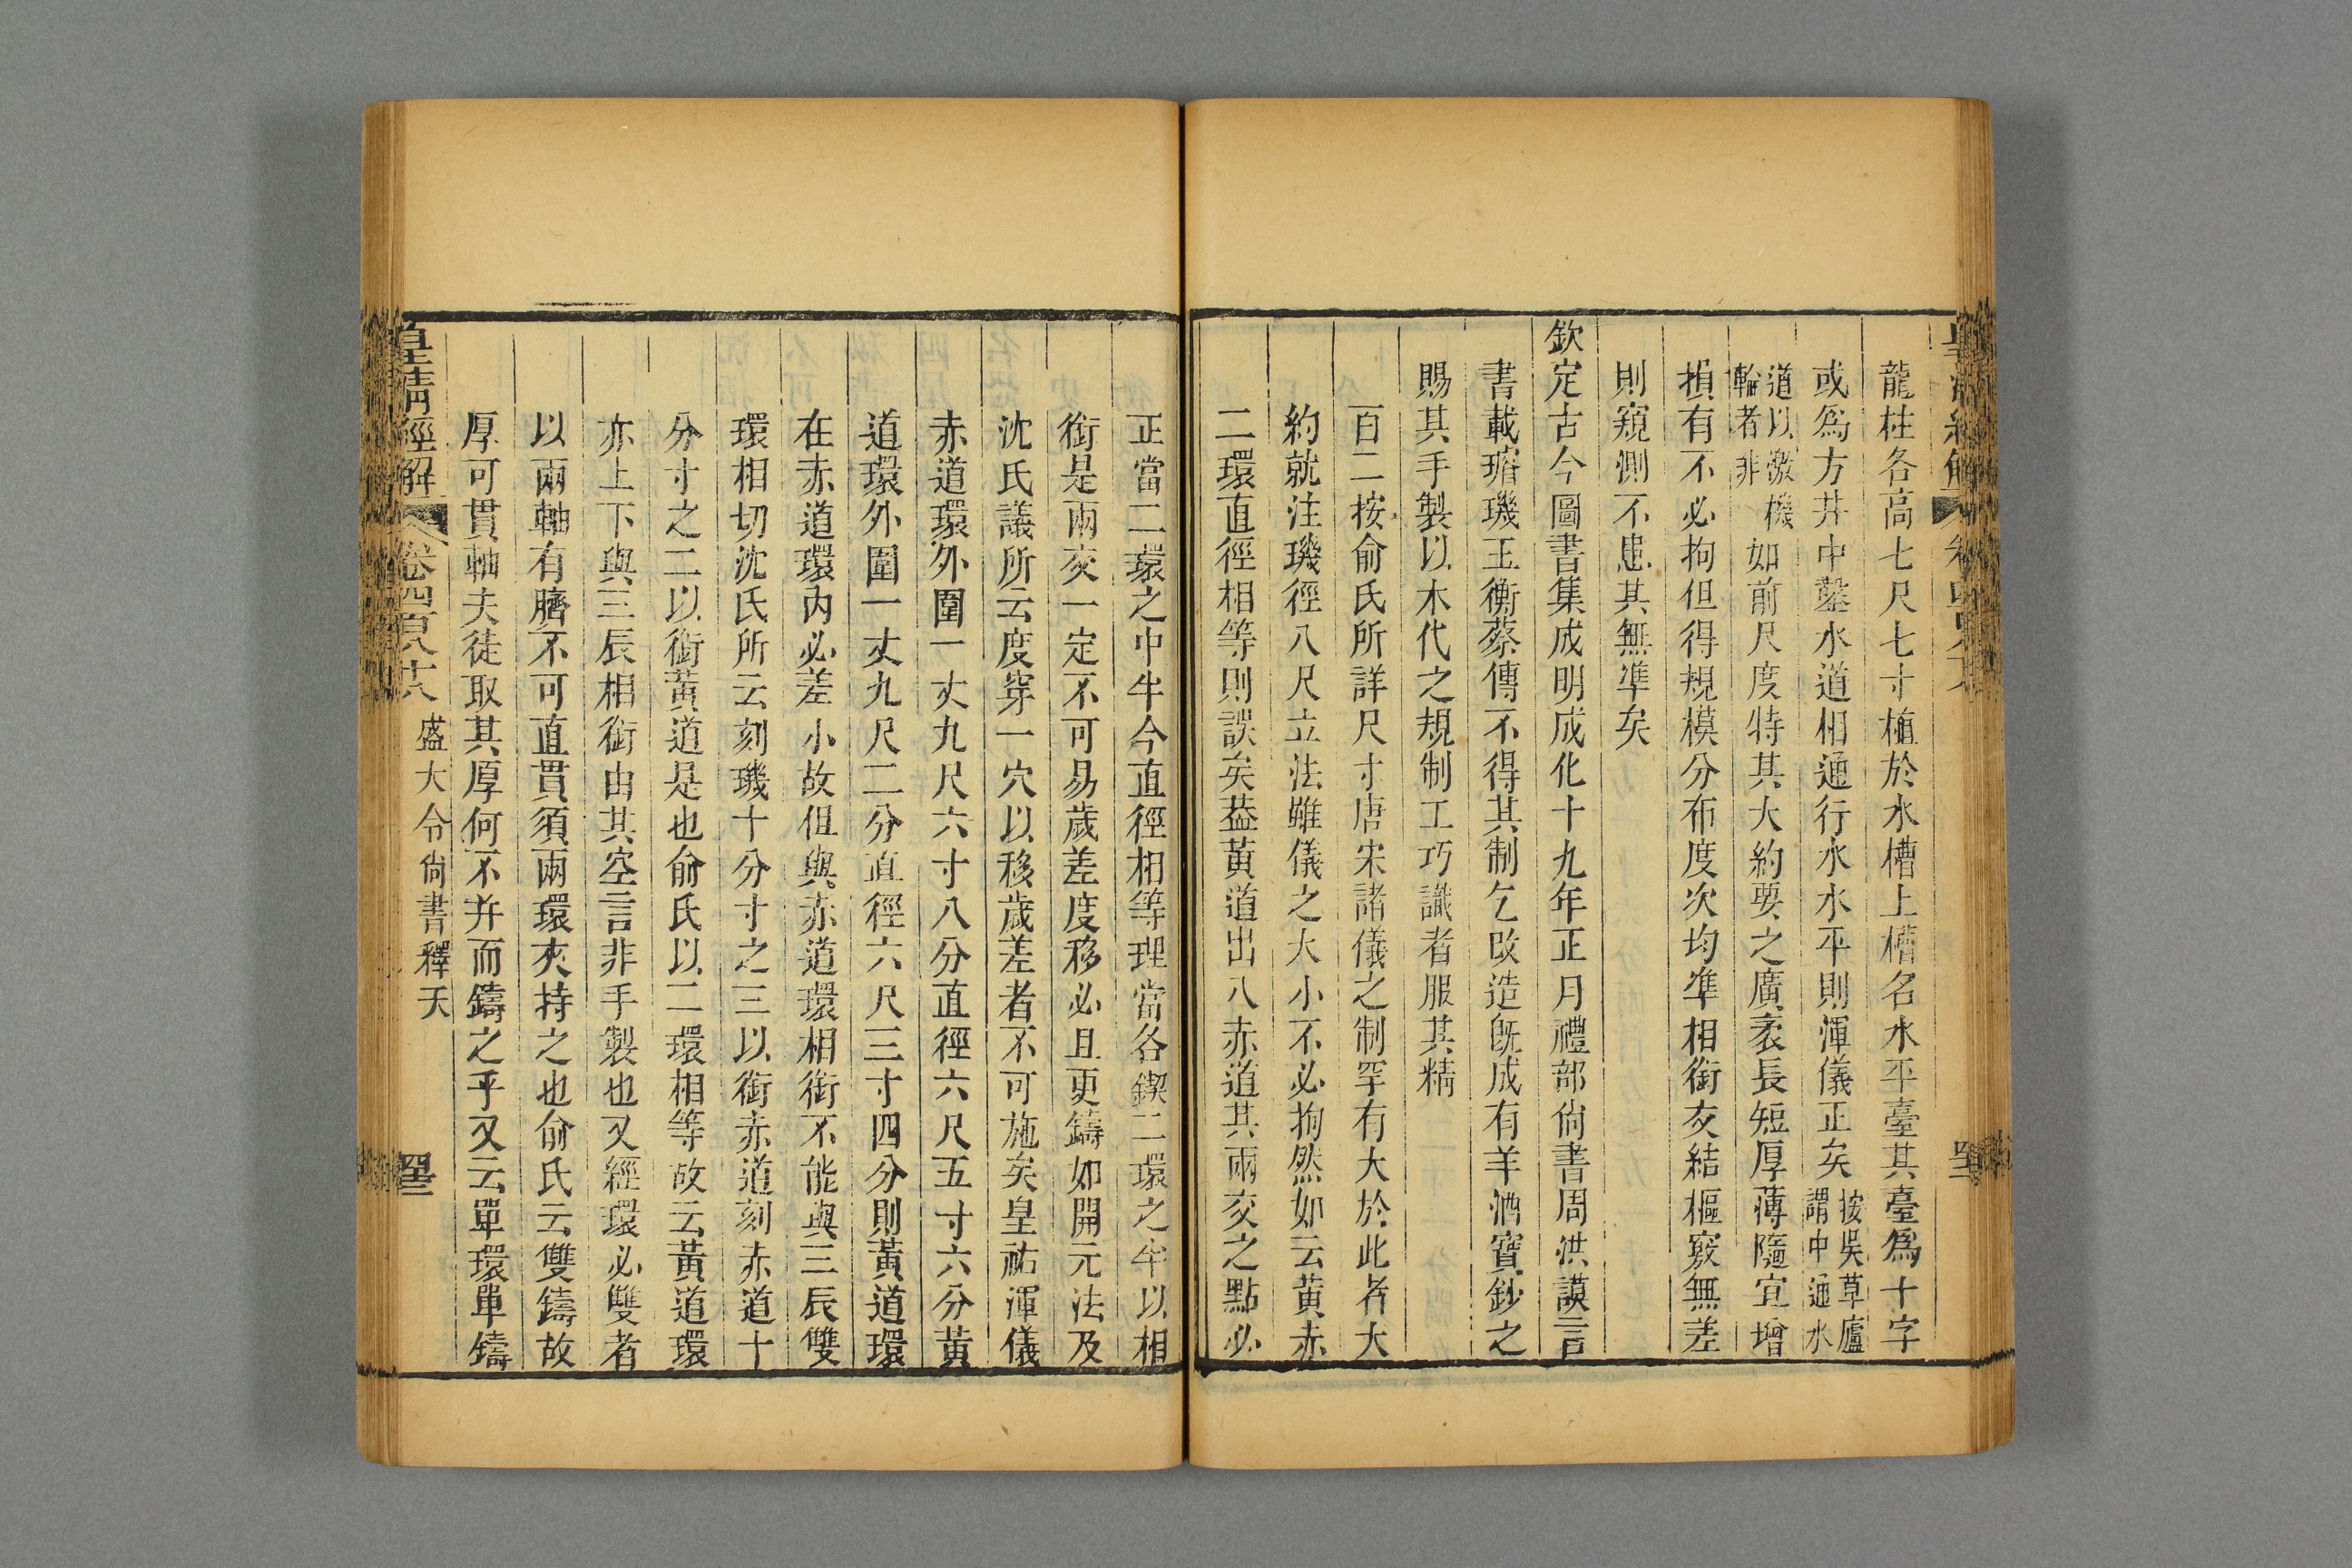 龍柱各高七尺七寸植於水槽上槽名水平臺其臺爲十字
或爲方井中鑿水道相通行水水平則渾儀正矣按吳草廬謂中通水
道以激機輪者非如前尺度特其大約要之廣袤長短厚薄隨宜增
損有不必拘但得規模分布度次均準相銜交結樞竅無差
則窺測不患其無準矣
欽定古今圖書集成明成化十九年正月禮部尙書周洪謨言
書載璿璣玉衡蔡傳不得其制乞改造旣成有羊酒寶鈔之
賜其手製以木代之規制工巧識者服其精
百二按俞氏所詳尺寸唐宋諸儀之制罕有大於此者大
約就注璣徑八尺立法雖儀之大小不必拘然如云黃赤
二環直徑相等則誤矣葢黃道出入赤道其兩交之點必
正當二環之中牛今直徑相等理當各鍥二環之牟以相
銜是兩交一定不可易歲差度移必且更鑄如開元法及
沈氏議所云度穿一穴以移歲差者不可施矣皇祐渾儀
赤道環外圍一丈九尺六寸八分直徑六尺五寸六分黃
道環外圍一丈九尺二分直徑六尺三寸四分則黃道環
在赤道環內必差小故但與赤道環相銜不能與三辰雙
環相切沈氏所云刻璣十分寸之三以銜赤道刻赤道十
分寸之二以銜黃道是也俞氏以二環相等故云黃道環
亦上下與三辰相銜由其空言非手製也又經環必雙者
以兩軸有臍不可直貫須兩環夾持之也俞氏云雙鑄故
厚可貫軸夫徒取其厚何不并而鑄之乎又云單環單鑄
皇清經解 卷四百八十六 盛大令尙書釋天